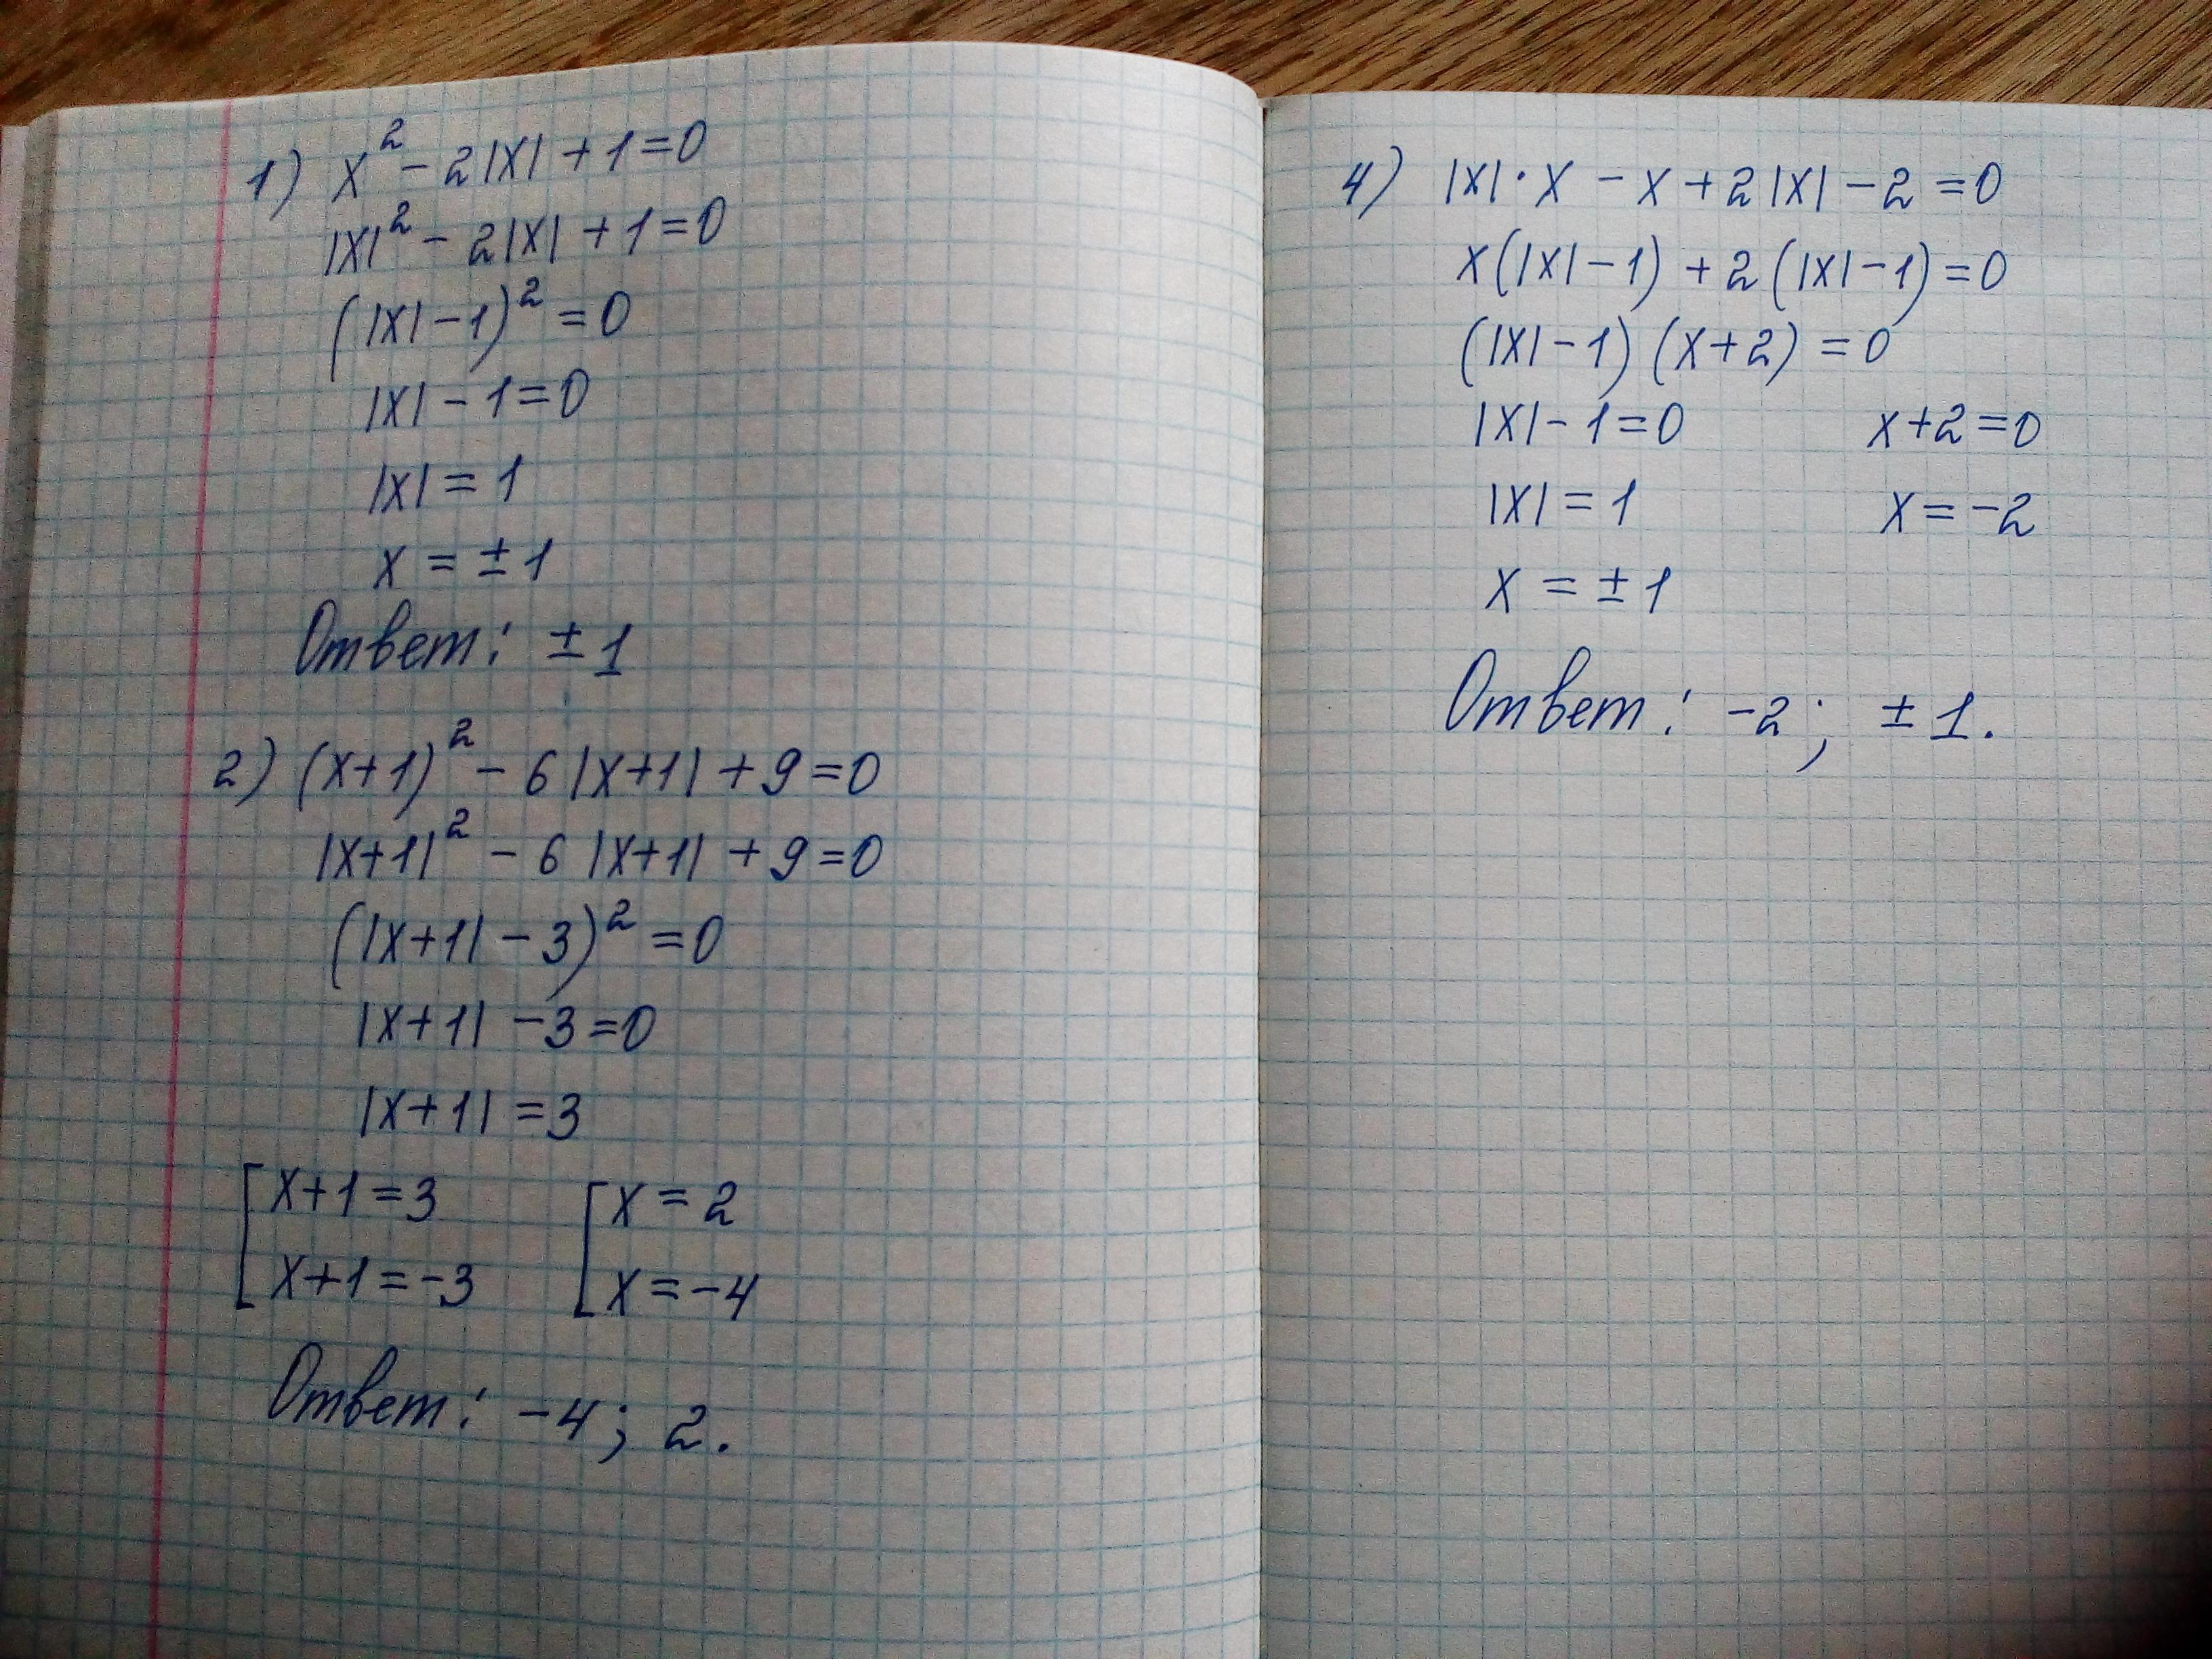 1) x² - 2|x| + 1 = 0
|x|² - 2|x| + 1 = 0
(|x| - 1)² = 0
|x| - 1 = 0
|x| = 1
x = ± 1
Ответ: ± 1
2) (x+1)² - 6|x+1| + 9 = 0
|x+1|² - 6|x+1| + 9 = 0
(|x+1| - 3)² = 0
|x+1| - 3 = 0
|x+1| = 3
[x+1 = 3 [x = 2
x+1 = -3 x = -4
Ответ: -4; 2.
4) |x|·x - x + 2|x| - 2 = 0
x(|x| - 1) + 2(|x| - 1) = 0
(|x| - 1)(x+2) = 0
|x| - 1 = 0 x+2 = 0
|x| = 1 x = -2
x = ± 1
Ответ: -2; ± 1.